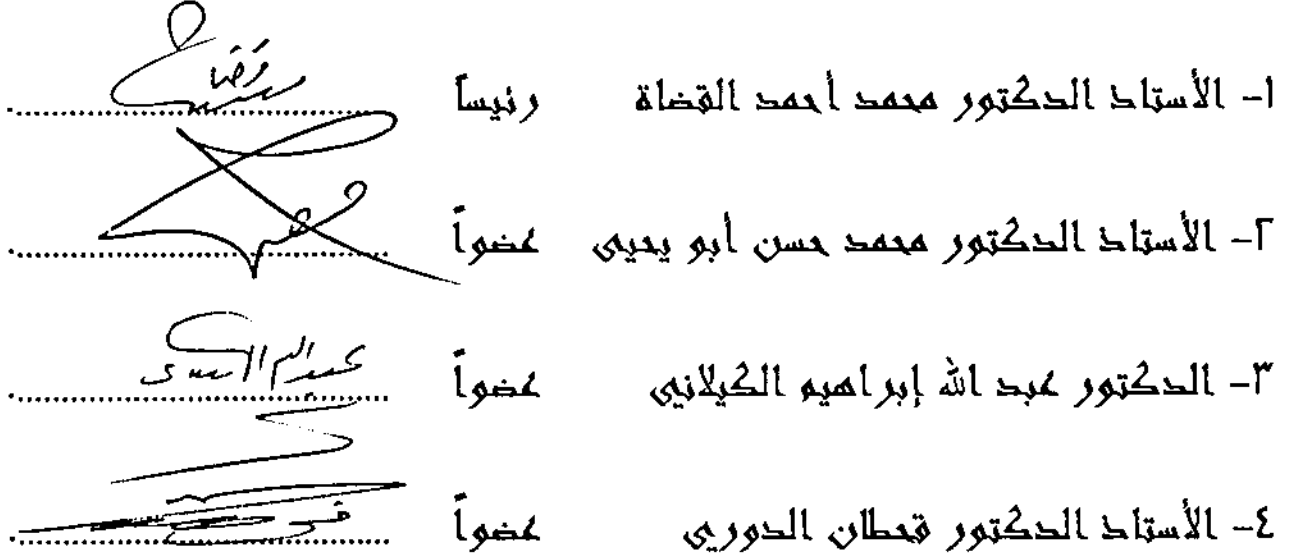 ١- الأستاذ الدكتور محمد أحمد القضاة رئيساً
٢- الأستاذ الدكتور محمد حسن أبو يحيى عضواً
٣- الدكتور عبد الله إبراهيم الكيلاني عضواً
٤- الأستاذ الدكتور قحطان الدوري عضواً